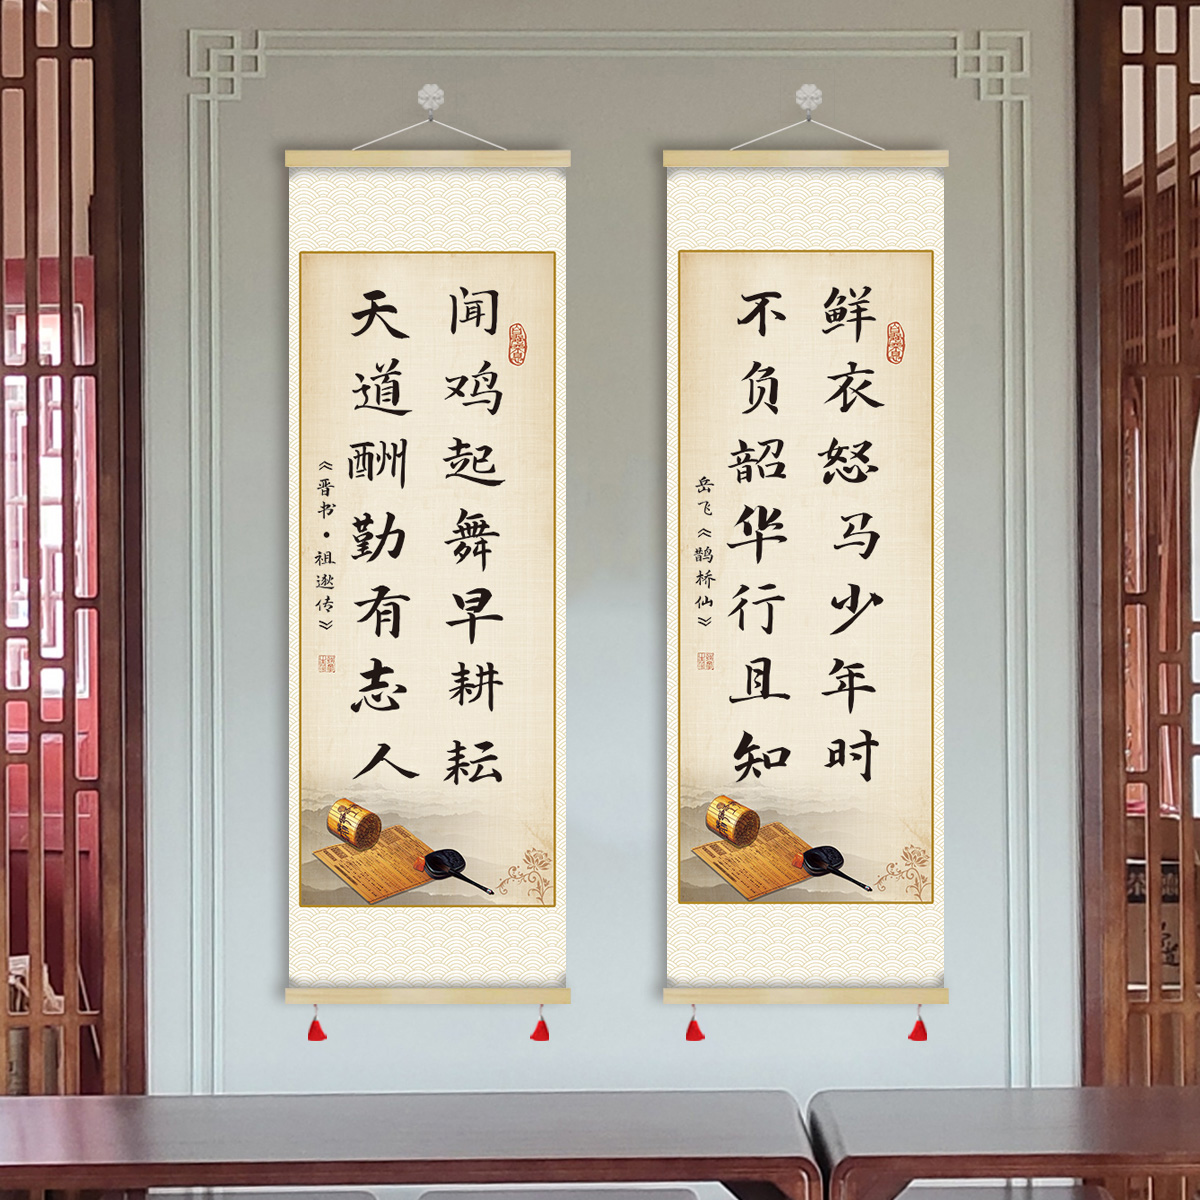 鲜衣怒马少年时
不负韶华行且知
岳飞《鹊桥仙》
闻鸡起舞早耕耘
天道酬勤有志人
《晋书·祖逖传》